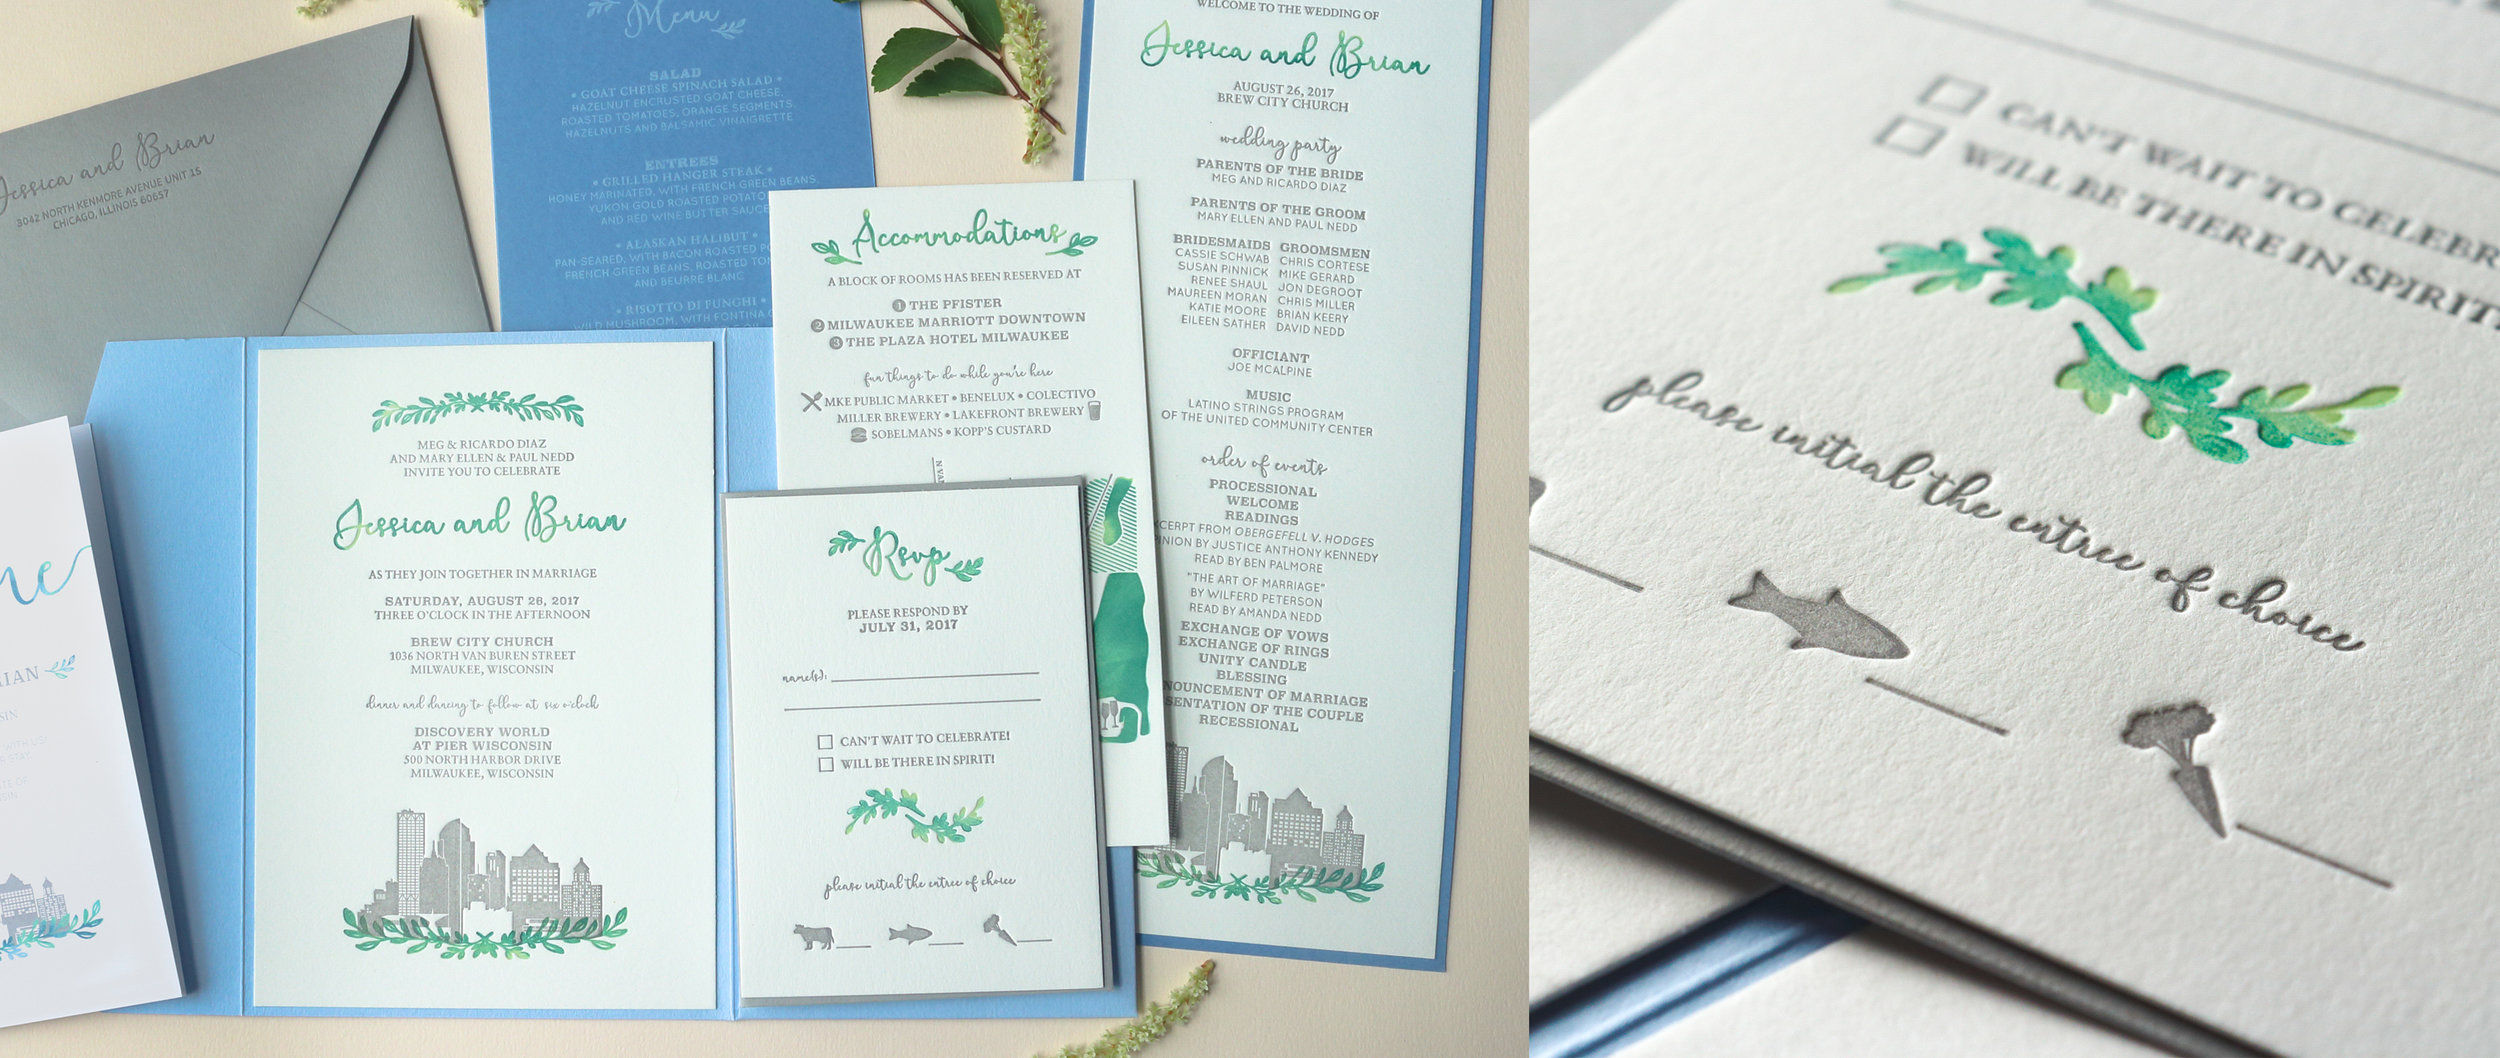 Jessica and Brian
3042 NORTH KENMORE AVENUE UNIT 1S
CHICAGO, ILLINOIS 60657
Menu
SALAD
• GOAT CHEESE SPINACH SALAD •
HAZELNUT ENCRUSTED GOAT CHEESE,
ROASTED TOMATOES, ORANGE SEGMENTS,
HAZELNUTS AND BALSAMIC VINAIGRETTE
ENTREES
• GRILLED HANGER STEAK •
HONEY MARINATED, WITH FRENCH GREEN BEANS,
YUKON GOLD ROASTED
AND RED WINE BUTTER SAUCE
• ALASKAN HALIBUT •
PAN-SEARED, WITH BACON ROASTED
FRENCH GREEN BEANS, ROASTED
AND BEURRE BLANC
• RISOTTO DI FUNGHI •
WILD MUSHROOM, WITH FONTINA
WELCOME TO THE WEDDING OF
Jessica and Brian
AUGUST 26, 2017
BREW CITY CHURCH
wedding party
PARENTS OF THE BRIDE
MEG AND RICARDO DIAZ
PARENTS OF THE GROOM
MARY ELLEN AND PAUL NEDD
BRIDESMAIDS GROOMSMEN
CASSIE SCHWAB CHRIS CORTESE
SUSAN PINNICK MIKE GERARD
RENEE SHAUL JON DEGROOT
MAUREEN MORAN CHRIS MILLER
KATIE MOORE BRIAN KEERY
EILEEN SATHER DAVID NEDD
OFFICIANT
JOE MCALPINE
MUSIC
LATINO STRINGS PROGRAM
OF THE UNITED COMMUNITY CENTER
order of events
PROCESSIONAL
WELCOME
READINGS
EXCERPT FROM OBERGEFELL V. HODGES
OPINION BY JUSTICE ANTHONY KENNEDY
READ BY BEN PALMORE
"THE ART OF MARRIAGE"
BY WILFERD PETERSON
READ BY AMANDA NEDD
EXCHANGE OF VOWS
EXCHANGE OF RINGS
UNITY CANDLE
BLESSING
NOUNCEMENT OF MARRIAGE
SENTATION OF THE COUPLE
RECESSIONAL
Accommodations
A BLOCK OF ROOMS HAS BEEN RESERVED AT
1 THE PFISTER
2 MILWAUKEE MARRIOTT DOWNTOWN
3 THE PLAZA HOTEL MILWAUKEE
fun things to do while you're here
MKE PUBLIC MARKET • BENELUX • COLECTIVO
MILLER BREWERY • LAKEFRONT BREWERY
SOBELMANS • KOPP'S CUSTARD
N VAN
MEG & RICARDO DIAZ
AND MARY ELLEN & PAUL NEDD
INVITE YOU TO CELEBRATE
Jessica and Brian
AS THEY JOIN TOGETHER IN MARRIAGE
SATURDAY, AUGUST 26, 2017
THREE O'CLOCK IN THE AFTERNOON
BREW CITY CHURCH
1036 NORTH VAN BUREN STREET
MILWAUKEE, WISCONSIN
dinner and dancing to follow at six o'clock
DISCOVERY WORLD
AT PIER WISCONSIN
500 NORTH HARBOR DRIVE
MILWAUKEE, WISCONSIN
Rsvp
PLEASE RESPOND BY
JULY 31, 2017
name(s):
CAN'T WAIT TO CELEBRATE!
WILL BE THERE IN SPIRIT!
please initial the entree of choice
CAN'T WAIT TO CELEBR
WILL BE THERE IN SPIRIT
please initial the entree of choice